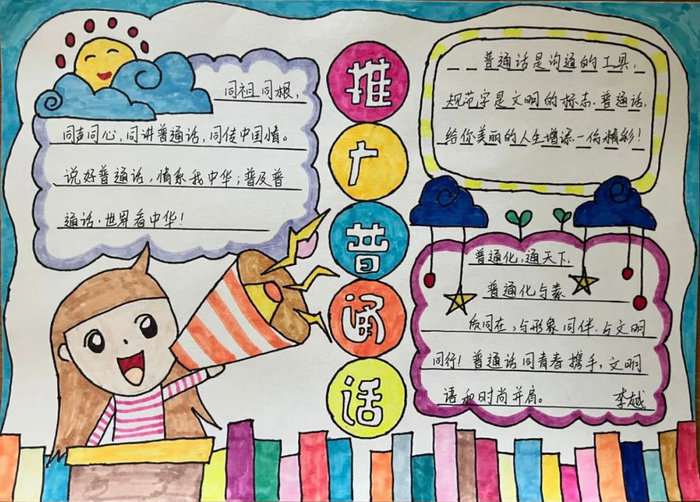 推广普通话
同祖同根，
同声同心，同讲普通话，同传中国情。
说好普通话，情系我中华；普及普
通话，世界看中华！
普通话是沟通的工具，
规范字是文明的标志，普通话，
给你美丽的人生增添一份精彩！
普通化，通天下，
普通化与素
质同在，与形象同伴，与文明
同行！普通话同青春携手，文明
语和时尚并肩。 李越